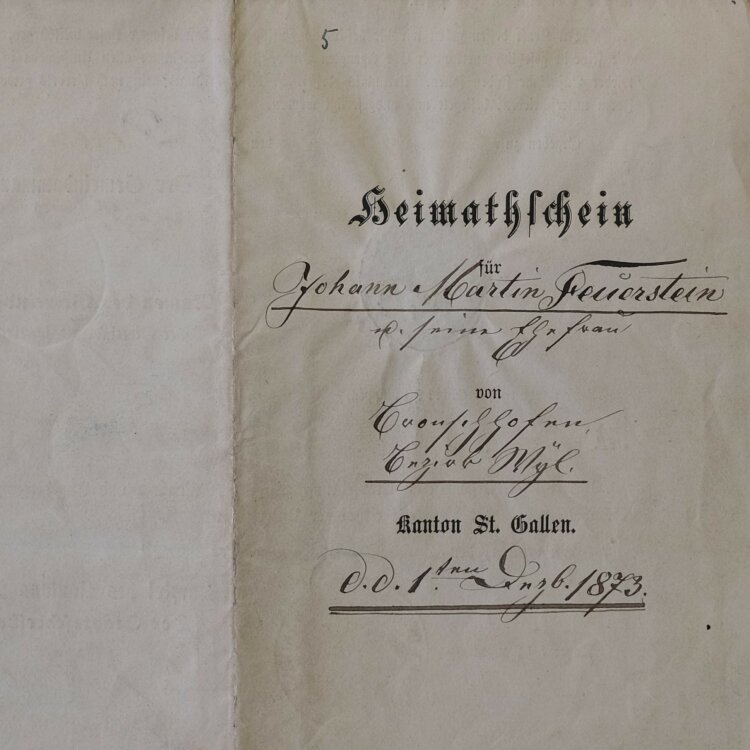 5
Heimathschein
für
Johann Martin Feuerstein
u. seine Ehefrau
von
Bronschhofen,
Bezirk Wÿl.
Kanton St. Gallen.
d. d. 1.ten Dezb. 1873.